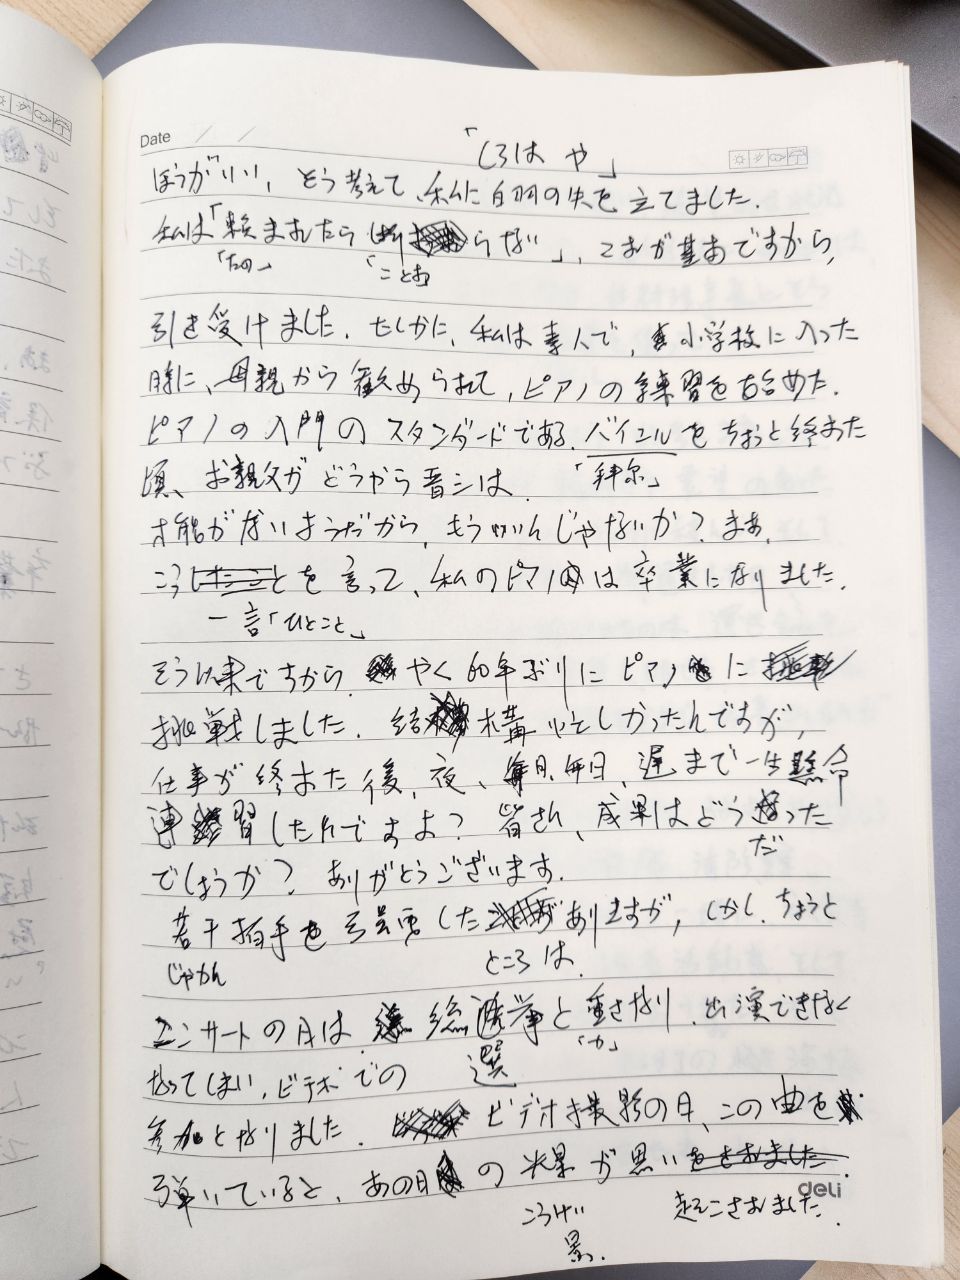 Date / /
「しろは や」
ほうがいい、そう考えて、私に白羽の矢を立てました.
私は「頼まれたら断 らない」、これが基本ですから,
「たの」 「ことわ」
引き受けました. たしかに、私は素人で, 小学校に入った
時に、母親から勧められて, ピアノの練習を始めた.
ピアノの入門のスタンダードである バイエルをちょっと終わった
頃、お親父がどうから晋ンは. 「拜尔」
才能がないようだから, もういいんじゃないか? まあ,
こう とを言って、私のピアノは卒業になりました.
一言「ひとこと」
そう以来ですから. やく60年ぶりにピアノに
挑戦しました. 結構 いそしかったんですが,
仕事が終わた後、夜、毎日、毎日、遅まで一生懸命
練習したんですよ? 皆さん、成果はどう った
だ
でしょうか? ありがとうございます.
若干拍手を した ありますが, しかし、ちょうと
じゃかん ところは.
コンサートの日は 総 挙と重さなり. 出演できなく
選 「か」
なってしまい、ビデオでの
参加となりました. ビデオ撮影の日、この曲を
弾いていると、あの日 の光景が思い .
deli
こうけい 起こされました.
景.